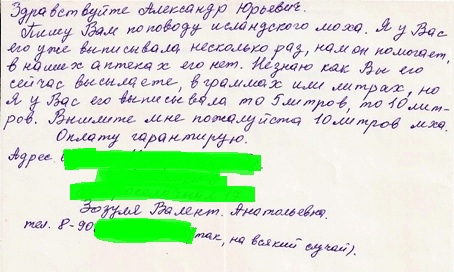 Здравствуйте Александр Юрьевич.
Пишу Вам по поводу исландского моха. Я у Вас
его уже выписывала несколько раз, нам он помогает,
в наших аптеках его нет. Незнаю как Вы его
сейчас высылаете, в граммах или литрах, но
Я у Вас его выписывала то 5 литров, то 10 лит-
ров. Вышлите мне пожалуйста 10 литров мха.
Оплату гарантирую.
Адрес
Зозуля Валент. Анатольевна.
тел. 8-90 так, на всякий случай).